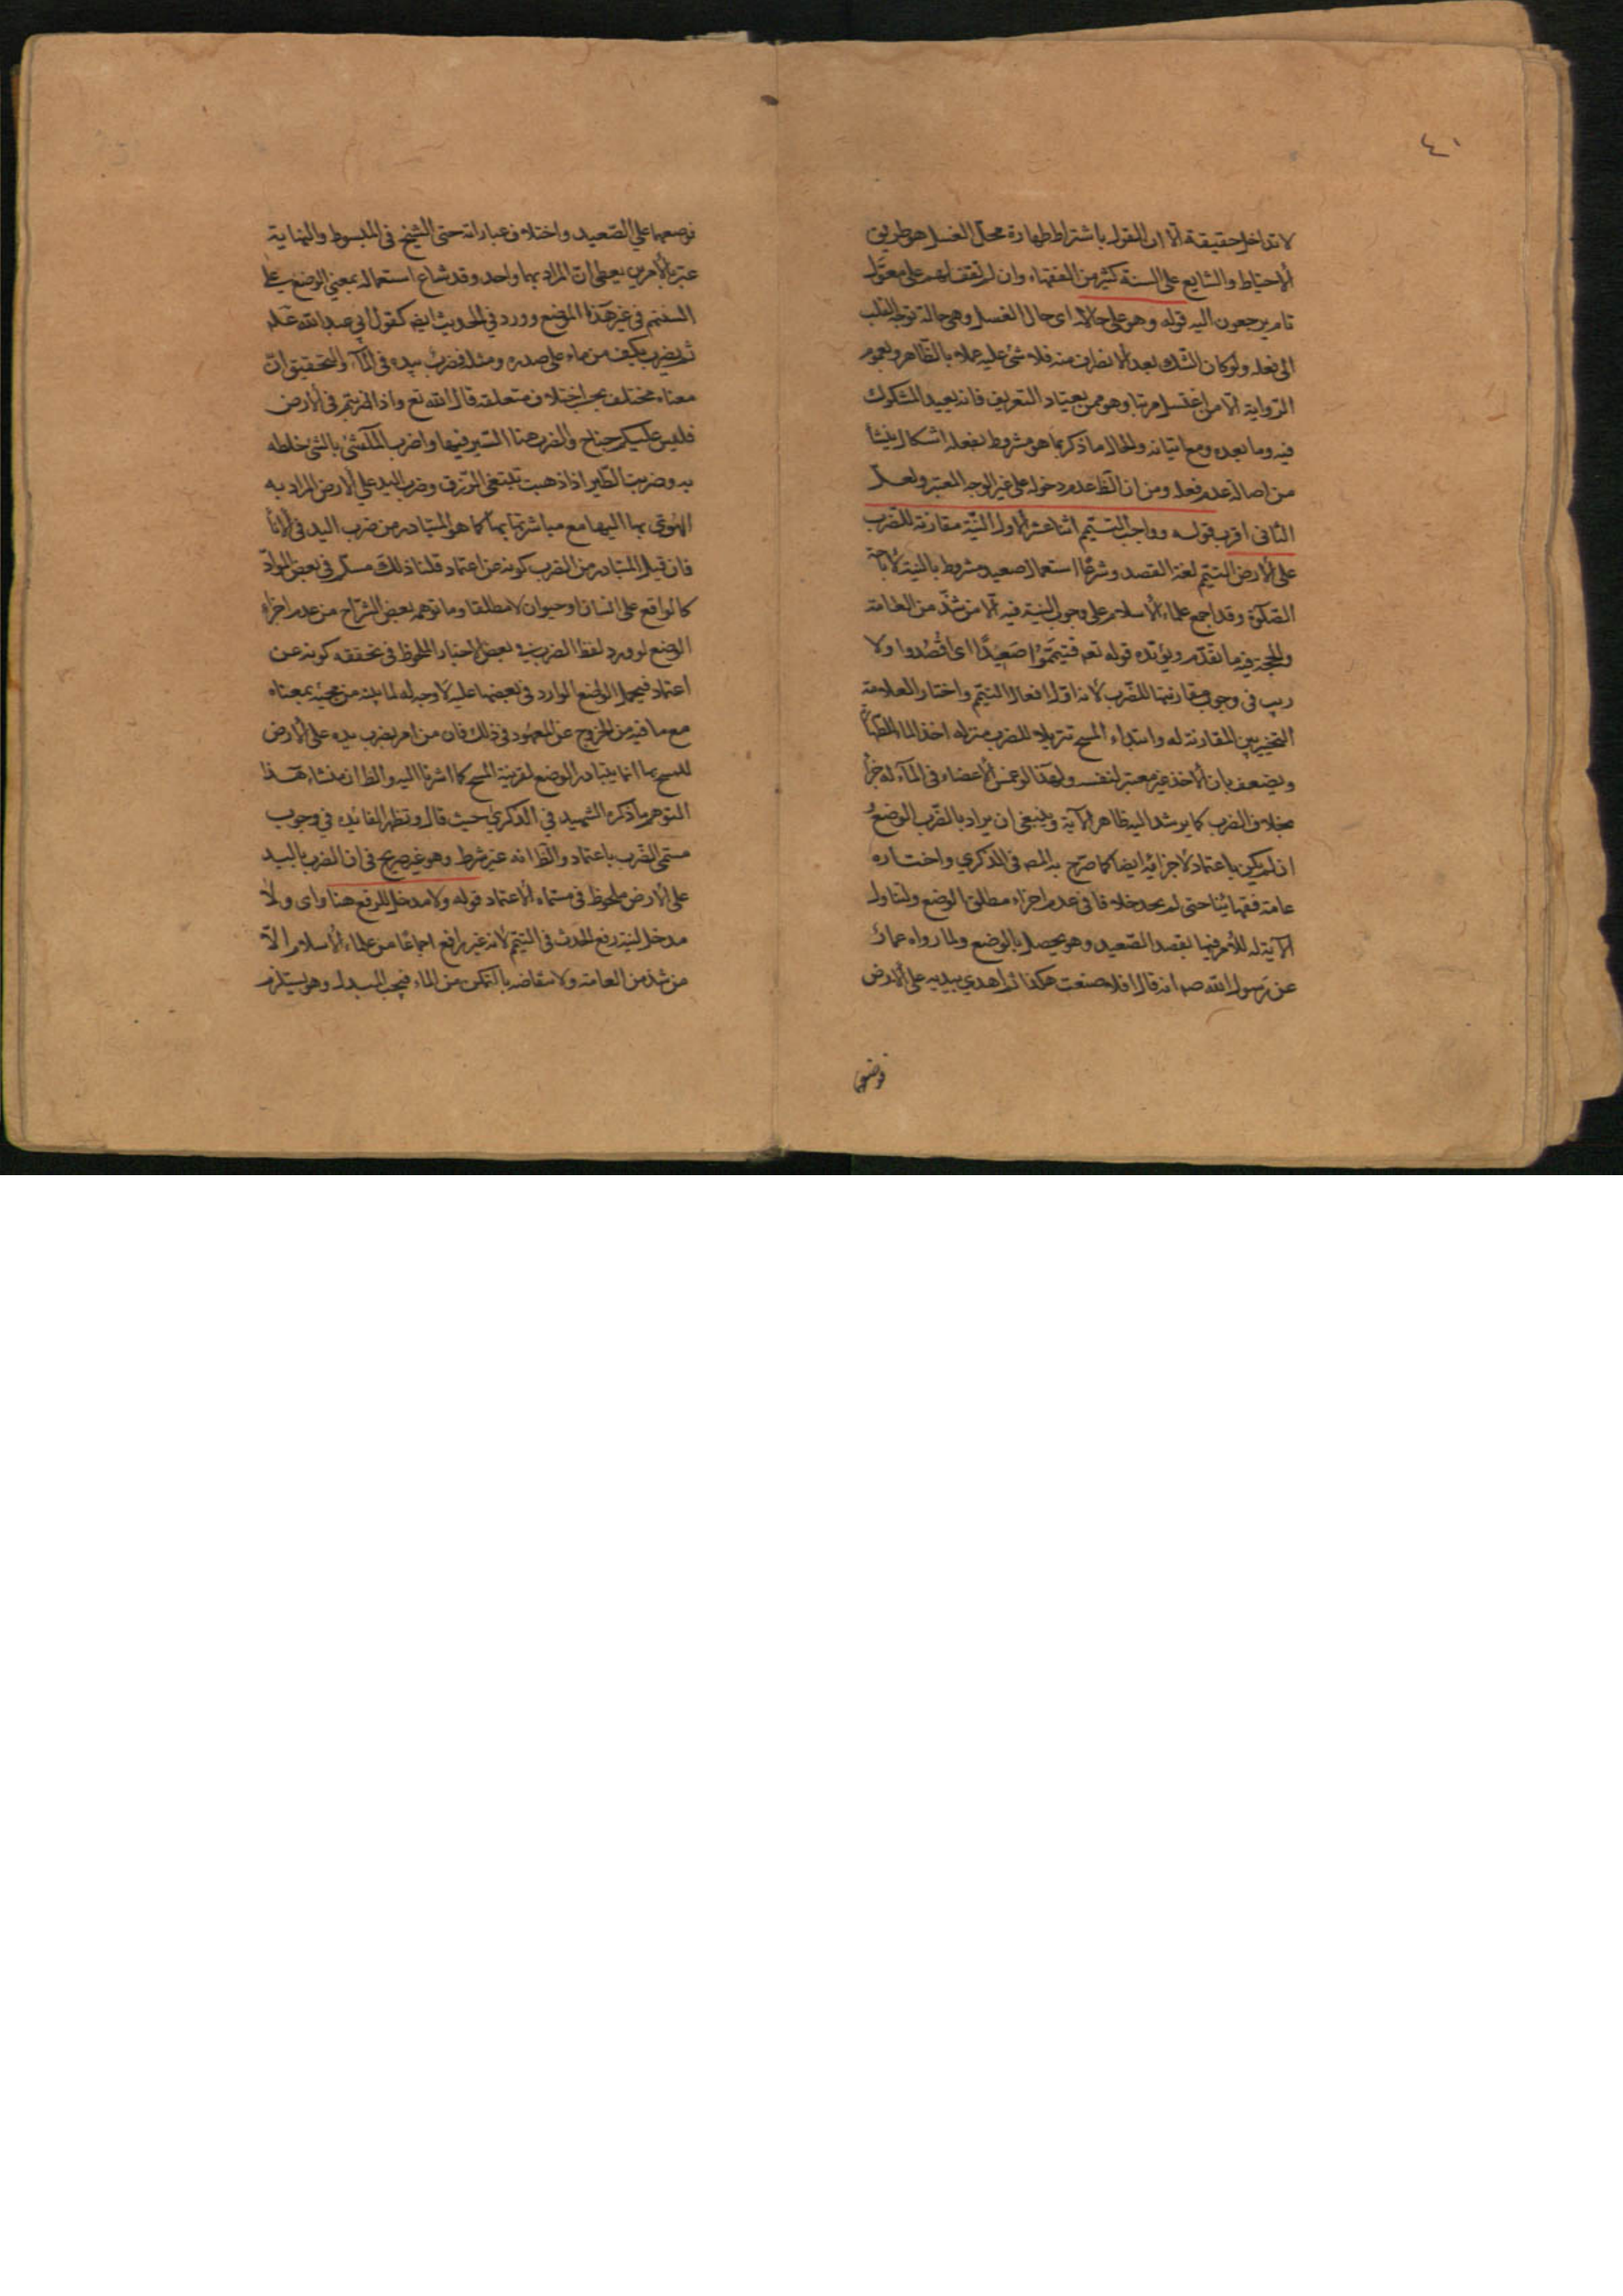 ٤١
لا تداخل حقيقة الا ان القول باشتراط طهارة محل الغسل هو طريق
الاحتياط والشايع على السنة كثير من الفقهاء وان لم نقف لهم على معول
تام يرجعون اليه قوله وهو على حاله اى حال الغسل وهى حالة توجه القلب
الى فعله ولو كان الشك بعد الانصراف منه فلا شئ عليه عملا بالظاهر ولعموم
الرواية اما من اغتسل مرتبا وهو ممن يعتاد التفريق فانه يعيد المشكوك
فيه وما بعده ومع اتيانه والحال ما ذكر بما هو مشروط بفعله اشكال ينشأ
من اصالة عدم فعله ومن ان الظ عدم دخوله على غير الوجه المعتبر ولعل
الثانى اقرب قوله وواجب التيمم اثنا عشر الاول النية مقارنة للضرب
على الارض التيمم لغة القصد وشرعا استعمال صعيد مشروط بالنية لاباحة
الصلوة وقد اجمع علماء الاسلام على وجوب النية فيه الا من شذ من العامة
والحجة فيه ما تقدم ويؤيده قوله تعه فتيمموا صعيدا اى اقصدوا ولا
ريب فى وجوب مقارنتها للضرب لانه اول افعال التيمم واختار العلامة
التخيير بين المقارنة له وابتداء المسح تنزيلا للضرب منزلة اخذ الماء للطهارة
ويضعف بان الاخذ غير معتبر لنفسه ولهذا لو غمس الاعضاء فى الماء له جزأ
بخلاف الضرب كما يرشد اليه ظاهر الآية وينبغى ان يراد بالضرب الوضع
ان لم يكن باعتماد لاجزائه ايضا كما صرح به المص فى الذكرى واختاره
عامة فقهائنا حتى لم يجد خلافا فى عدم اجزاء مطلق الوضع ولتناول
الآية له للأمر فيها بقصد الصعيد وهو يحصل بالوضع ولما رواه عمار
عن رسول الله صه انه قال افلا صنعت هكذا ثم اهوى بيديه على الارض
فوضعهما
فوضعهما على الصعيد واختلاف عباراته حتى الشيخ فى المبسوط والنهاية
عبر بالامرين يعطى ان المراد بهما واحد وقد شاع استعماله بمعنى الوضع على
السنتهم فى غير هذا الموضع وورد فى الحديث ايضه كقول ابى عبد الله عليه
ثم يضرب بكف من ماء على صدره ومثله فضرب بيده فى الماء والتحقيق ان
معناه مختلف بحسب اختلاف متعلقه قال الله تع واذا ضربتم فى الارض
فليس عليكم جناح والضرب هنا السير فيها واضرب الشئ بالشئ خلطه
به وضربت الطير اذا ذهبت تبتغى الرزق وضرب اليد على الارض المراد به
الهوى بها اليها مع مباشرتها بها كما هو المتبادر من ضرب اليد فى الاناء
فان قيل المتبادر من الضرب كونه عن اعتماد قلنا ذلك مسلم فى بعض المواد
كالواقع على انسان او حيوان لا مطلقا وما توهمه بعض الشراح من عدم اجزاء
الوضع لورود لفظ الضرب فى بعض الاخبار الملحوظ فى تحققه كونه عن
اعتماد فيحمل الوضع الوارد فى بعضها عليه لا وجه له لما بينه من مجيئه بمعناه
مع ما فيه من الخروج عن المعهود فى ذلك فان من امر بضرب يده على الارض
للمسح بها انما يتبادر الوضع لقرينة المسح كما اشرنا اليه والظ ان منشاء هذا
التوهم ما ذكره الشهيد فى الذكرى حيث قال وتظهر الفائده فى وجوب
مسمى الضرب باعتماد والظ انه غير شرط وهو غير صريح فى ان الضرب باليد
على الارض ملحوظ فى مسماه الاعتماد قوله ولا مدخل للرفع هنا واى ولا
مدخل لنية رفع الحدث فى التيمم لانه غير رافع اجماعا من علماء الاسلام الا
من شذ من العامة ولانتقاضه بالتمكن من الماء فيجب المبدل وهو يستلزم